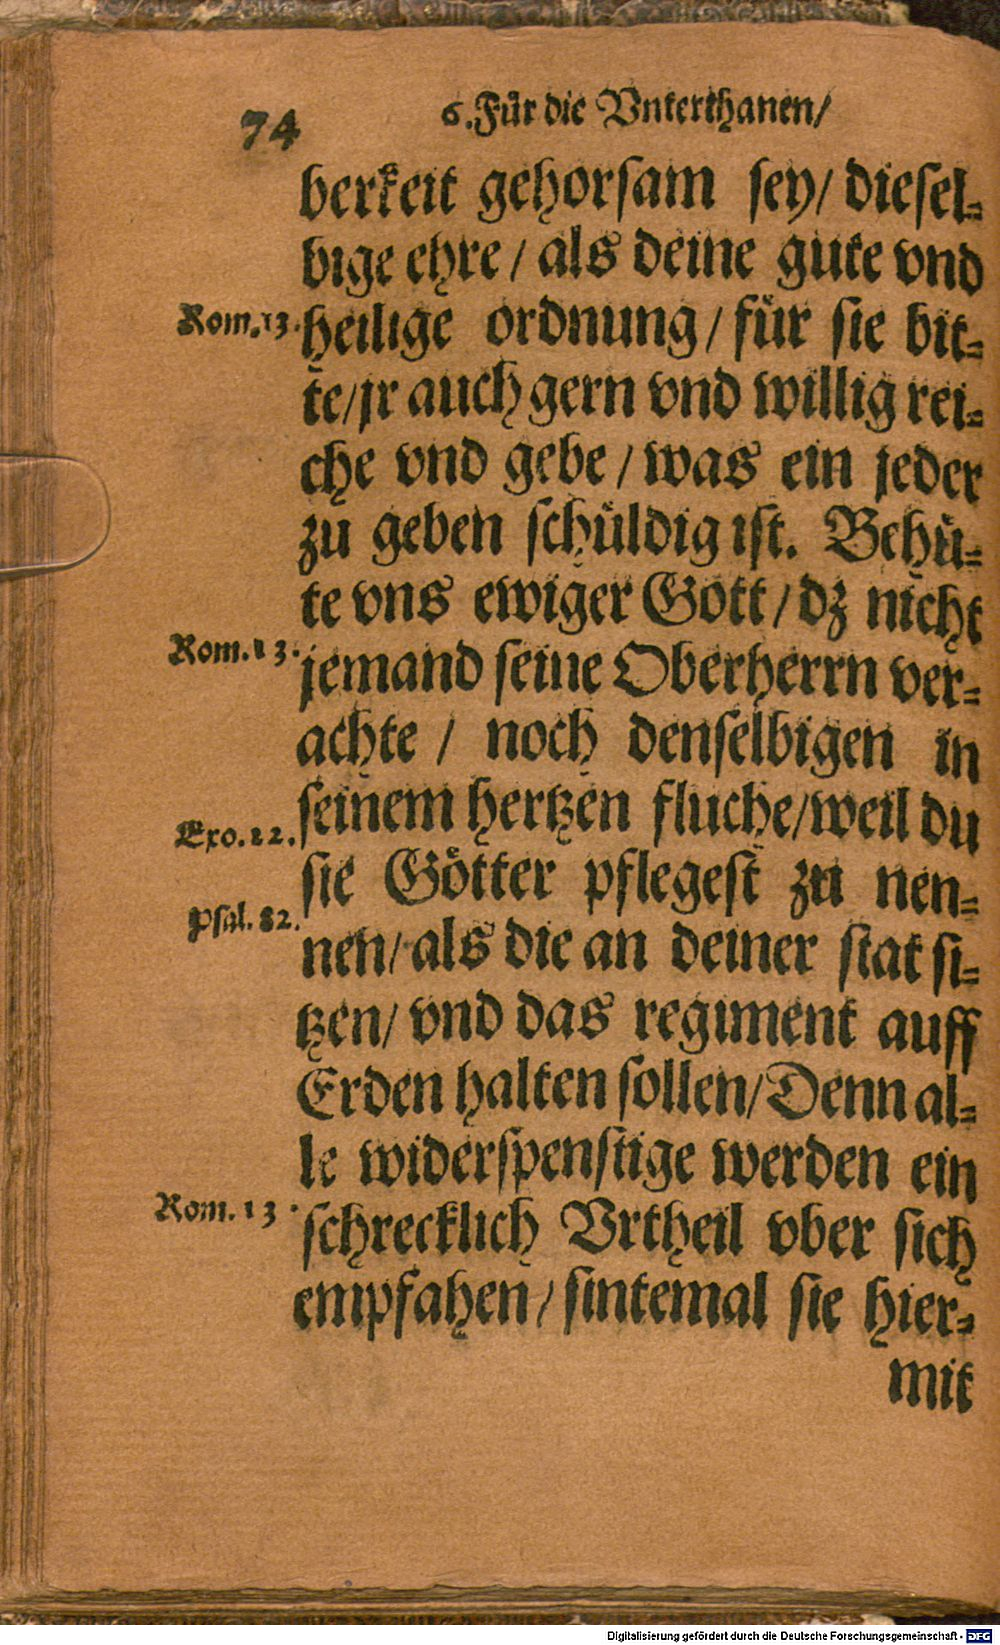 74
6. Für die Vnterthanen/
berkeit gehorsam sey/ diesel-
bige ehre/ als deine gute vnd
Rom. 13.
heilige ordnung/ für sie bit-
te/ jr auch gern vnd willig rei-
che vnd gebe/ was ein jeder
zu geben schüldig ist. Behü-
te vns ewiger Gott/ dz nicht
Rom. 13.
jemand seine Oberherrn ver-
achte/ noch denselbigen in
seinem hertzen fluche/ weil du
Exo. 22.
sie Götter pflegest zu nen-
Psal. 82.
nen/ als die an deiner stat si-
tzen/ vnd das regiment auff
Erden halten sollen/ Denn al-
le widerspenstige werden ein
Rom. 13.
schrecklich Vrtheil vber sich
empfahen/ sintemal sie hier-
mit
Digitalisierung gefördert durch die Deutsche Forschungsgemeinschaft - DFG